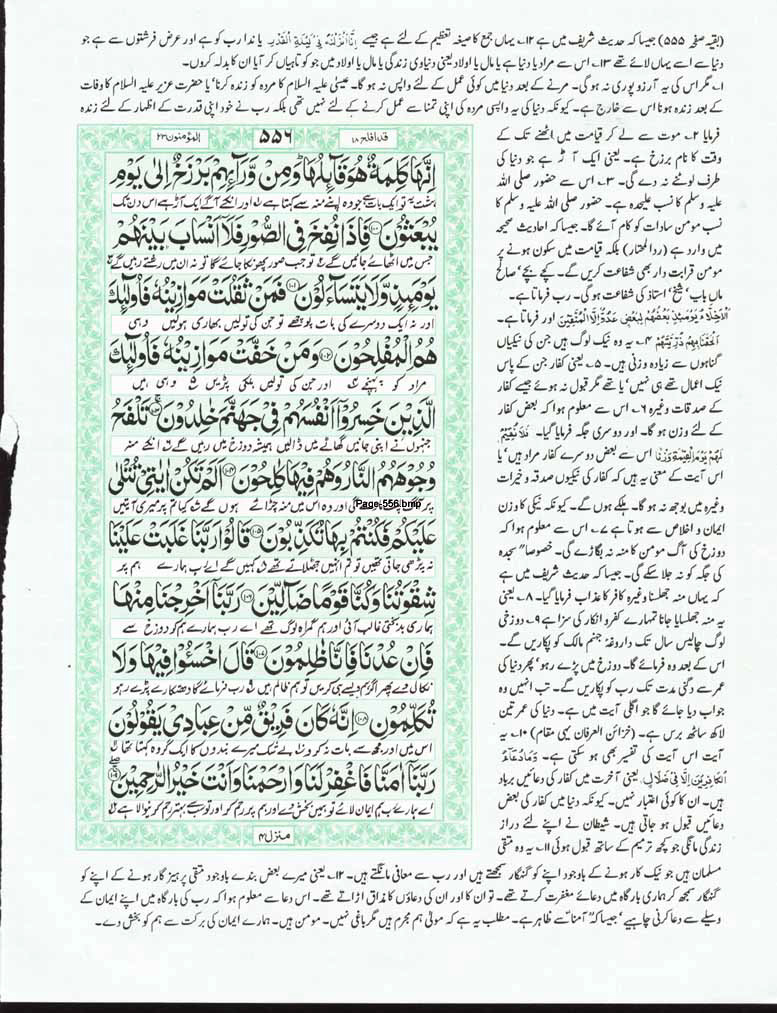 (بقیہ صفحہ ۵۵۵) جیسا کہ حدیث شریف میں ہے ۱۲۔ یہاں جمع کا صیغہ تعظیم کے لئے ہے جیسے اِنَّا اَنْزَلْنٰہُ فِیْ لَیْلَۃِ الْقَدْرِ یا ندا رب کو ہے اور عرض فرشتوں سے ہے جو
دنیا سے اسے یہاں لائے تھے ۱۳۔ اس سے مراد یا دنیا ہے یا مال یا اولاد یعنی دنیاوی زندگی یا مال یا اولاد میں جو کوتاہیاں کر آیا ان کا بدلہ کروں۔
۱۔ مگر اس کی یہ آرزو پوری نہ ہو گی۔ مرنے کے بعد دنیا میں کوئی عمل کے لئے واپس نہ ہو گا۔ عیسیٰ علیہ السلام کا مردہ کو زندہ کرنا' یا حضرت عزیر علیہ السلام کا وفات
کے بعد زندہ ہونا اس سے خارج ہے۔ کیونکہ دنیا کی یہ واپسی مردہ کی اپنی تمنا سے عمل کرنے کے لئے نہیں تھی بلکہ رب نے خود اپنی قدرت کے اظہار کے لئے زندہ
فرمایا ۲۔ موت سے لے کر قیامت میں اٹھنے تک کے
وقت کا نام برزخ ہے۔ یعنی ایک آڑ ہے جو دنیا کی
طرف لوٹنے نہ دے گی۔ ۳۔ اس سے حضور صلی اللہ
علیہ وسلم کا نسب علیحدہ ہے۔ حضور صلی اللہ علیہ وسلم کا
نسب مومن سادات کو کام آئے گا۔ جیسا کہ احادیث صحیحہ
میں وارد ہے (ردالمحتار) بلکہ قیامت میں سکون ہونے پر
مومن قرابت دار بھی شفاعت کریں گے۔ کچے بچے' صالح
ماں باپ' شیخ' استاذ کی شفاعت ہو گی۔ رب فرماتا ہے۔
اَلْاَخِلَّآءُ یَوْمَئِذٍ بَعْضُھُمْ لِبَعْضٍ عَدُوٌّ اِلَّا الْمُتَّقِیْنَ اور فرماتا ہے۔
اَلْحَقْنَا بِھِمْ ذُرِّیَّتَھُمْ ۴۔ یہ وہ نیک لوگ ہیں جن کی نیکیاں
گناہوں سے زیادہ وزنی ہیں۔ ۵۔ یعنی کفار جن کے پاس
نیک اعمال تھے ہی نہیں' یا تھے مگر قبول نہ ہوئے جیسے کفار
کے صدقات وغیرہ ۶۔ اس سے معلوم ہوا کہ بعض کفار
کے لئے وزن ہو گا۔ اور دوسری جگہ فرمایا گیا۔ فَلَا نُقِیْمُ
لَھُمْ یَوْمَ الْقِیٰمَۃِ وَزْنًا اس سے بعض دوسرے کفار مراد ہیں' یا
اس آیت کے معنی یہ ہیں کہ کفار کی نیکیوں صدقہ و خیرات
وغیرہ میں بوجھ نہ ہو گا۔ ہلکے ہوں گے۔ کیونکہ نیکی کا وزن
ایمان و اخلاص سے ہوتا ہے ۷۔ اس سے معلوم ہوا کہ
دوزخ کی آگ مومن کا منہ نہ بگاڑے گی۔ خصوصاً سجدہ
کی جگہ کو نہ جلا سکے گی۔ جیسا کہ حدیث شریف میں ہے
کہ یہاں منہ جھلسنا وغیرہ کافر کا عذاب فرمایا گیا۔ ۸۔ یعنی
یہ منہ جھلسایا جانا تمہارے کفر و انکار کی سزا ہے ۹۔ دوزخی
لوگ چالیس سال تک داروغہ جہنم مالک کو پکاریں گے۔
اس کے بعد وہ فرمائے گا۔ دوزخ میں پڑے رہو' پھر دنیا کی
عمر سے دگنی مدت تک رب کو پکاریں گے۔ تب انہیں وہ
جواب دیا جائے گا جو اگلی آیت میں ہے۔ دنیا کی عمر تین
لاکھ ساٹھ برس ہے۔ (خزائن العرفان یہی مقام) ۱۰۔ یہ
آیت اس آیت کی تفسیر بھی ہو سکتی ہے۔ وَمَا دُعَآءُ
الْکَافِرِیْنَ اِلَّا فِیْ ضَلَالٍ یعنی آخرت میں کفار کی دعائیں برباد
ہیں۔ ان کا کوئی اعتبار نہیں۔ کیونکہ دنیا میں کفار کی بعض
دعائیں قبول ہو جاتی ہیں۔ شیطان نے اپنے لئے دراز
زندگی مانگی جو کچھ ترمیم کے ساتھ قبول ہوئی ۱۱۔ یہ وہ متقی
المؤمنون ۲۳
۵۵۶
قد افلح ۱۸
اِنَّهَا كَلِمَةٌ هُوَ قَآىِٕلُهَا وَمِنْ وَّرَآىِٕهِمْ بَرْزَخٌ اِلٰى يَوْمِ
ہشت یہ تو ایک بات ہے جو وہ اپنے منہ سے کہتا ہے اور انکے آگے ایک آڑ ہے اس دن تک
يُبْعَثُوْنَ ۝۱۰۰ فَاِذَا نُفِخَ فِي الصُّوْرِ فَلَاۤ اَنْسَابَ بَيْنَهُمْ
جس میں اٹھائے جائیں گے تو جب صور پھونکا جائے گا تو نہ ان میں رشتے رہیں گے
يَوْمَىِٕذٍ وَّلَا يَتَسَآءَلُوْنَ ۝۱۰۱ فَمَنْ ثَقُلَتْ مَوَازِيْنُهٗ فَاُولٰٓىِٕكَ
اور نہ ایک دوسرے کی بات پوچھے تو جن کی تولیں بھاری ہولیں وہی
هُمُ الْمُفْلِحُوْنَ ۝۱۰۲ وَمَنْ خَفَّتْ مَوَازِيْنُهٗ فَاُولٰٓىِٕكَ
مراد کو پہنچے اور جن کی تولیں ہلکی پڑیں وہی ہیں
الَّذِيْنَ خَسِرُوْۤا اَنْفُسَهُمْ فِيْ جَهَنَّمَ خٰلِدُوْنَ ۝۱۰۳ تَلْفَحُ
جنہوں نے اپنی جانیں گھاٹے میں ڈالیں ہمیشہ دوزخ میں رہیں گے انکے منہ
وُجُوْهَهُمُ النَّارُ وَهُمْ فِيْهَا كٰلِحُوْنَ ۝۱۰۴ اَلَمْ تَكُنْ اٰيٰتِيْ تُتْلٰى
پر Page-556.bmp گی اور وہ اس میں منہ چڑائے ہوں گے کیا تم پر میری آیتیں
عَلَيْكُمْ فَكُنْتُمْ بِهَا تُكَذِّبُوْنَ ۝۱۰۵ قَالُوْا رَبَّنَا غَلَبَتْ عَلَيْنَا
نہ پڑھی جاتی تھیں تو تم انہیں جھٹلاتے تھے کہیں گے اے رب ہمارے ہم پر
شِقْوَتُنَا وَكُنَّا قَوْمًا ضَآلِّيْنَ ۝۱۰۶ رَبَّنَاۤ اَخْرِجْنَا مِنْهَا
ہماری بدبختی غالب آئی اور ہم گمراہ لوگ تھے اے رب ہمارے ہم کو دوزخ سے
فَاِنْ عُدْنَا فَاِنَّا ظٰلِمُوْنَ ۝۱۰۷ قَالَ اخْسَـُٔوْا فِيْهَا وَلَا
نکال دے پھر اگر ہم ویسے ہی کریں تو ہم ظالم ہیں رب فرمائے گا دھتکارے پڑے رہو
تُكَلِّمُوْنِ ۝۱۰۸ اِنَّهٗ كَانَ فَرِيْقٌ مِّنْ عِبَادِيْ يَقُوْلُوْنَ
اس میں اور مجھ سے بات نہ کرو بے شک میرے بندوں کا ایک گروہ کہتا تھا
رَبَّنَاۤ اٰمَنَّا فَاغْفِرْ لَنَا وَارْحَمْنَا وَاَنْتَ خَيْرُ الرّٰحِمِيْنَ ۝۱۰۹
اے ہمارے رب ہم ایمان لائے تو ہمیں بخش دے اور ہم پر رحم کر اور تو سب سے بہتر رحم کرنیوالا ہے
منزل ۴
مسلمان ہیں جو نیک کار ہونے کے باوجود اپنے کو گنہگار سمجھتے ہیں اور رب سے معافی مانگتے ہیں۔ ۱۲۔ یعنی میرے بعض بندے باوجود متقی پرہیز گار ہونے کے اپنے کو
گنہگار سمجھ کر ہماری بارگاہ میں دعائے مغفرت کرتے تھے۔ تو ان کا اور ان کی دعاؤں کا مذاق اڑاتے تھے۔ اس دعا سے معلوم ہوا کہ رب کی بارگاہ میں اپنے ایمان کے
وسیلے سے دعا کرنی چاہیے' جیسا کہ "آمنا" سے ظاہر ہے۔ مطلب یہ ہے کہ مولیٰ ہم مجرم ہیں مگر باغی نہیں۔ مومن ہیں۔ ہمارے ایمان کی برکت سے ہم کو بخش دے۔